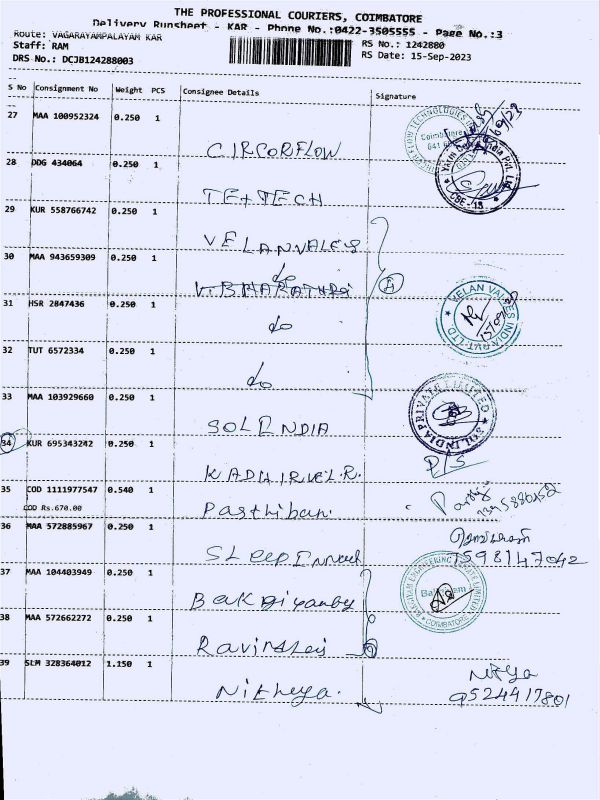 THE PROFESSIONAL COURIERS, COIMBATORE
Delivery Runsheet - KAR - Phone No.:0422-3505555 - Page No.:3
Route: VAGARAYAMPALAYAM KAR
RS No.: 1242880
Staff: RAM
RS Date: 15-Sep-2023
DRS No.: DCJB124288003
S No Consignment No Weight PCS Consignee Details Signature
27 MAA 100952324 0.250 1
CIRCORFLOW
28 DDG 434064 0.250 1
TEXTECH
29 KUR 558766742 0.250 1
VELANVALES
30 MAA 943659309 0.250 1
do
V.BHARATHRi
31 HSR 2847436 0.250 1
do
32 TUT 6572334 0.250 1
do
VELAN VALVES INDIA PVT LTD
33 MAA 103929660 0.250 1
SOLINDIA
SOL INDIA PRIVATE LIMITED
34 KUR 695343242 0.250 1
KADHIRVEL.R.
P/S
35 COD 1111977547 0.540 1
COD Rs.670.00
Parthiban.
36 MAA 572885967 0.250 1
7598147042
37 MAA 104403949 0.250 1
COIMBATORE
38 MAA 572662272 0.250 1
39 SLM 328364012 1.150 1
Nithya
Nitheya.
9524417801